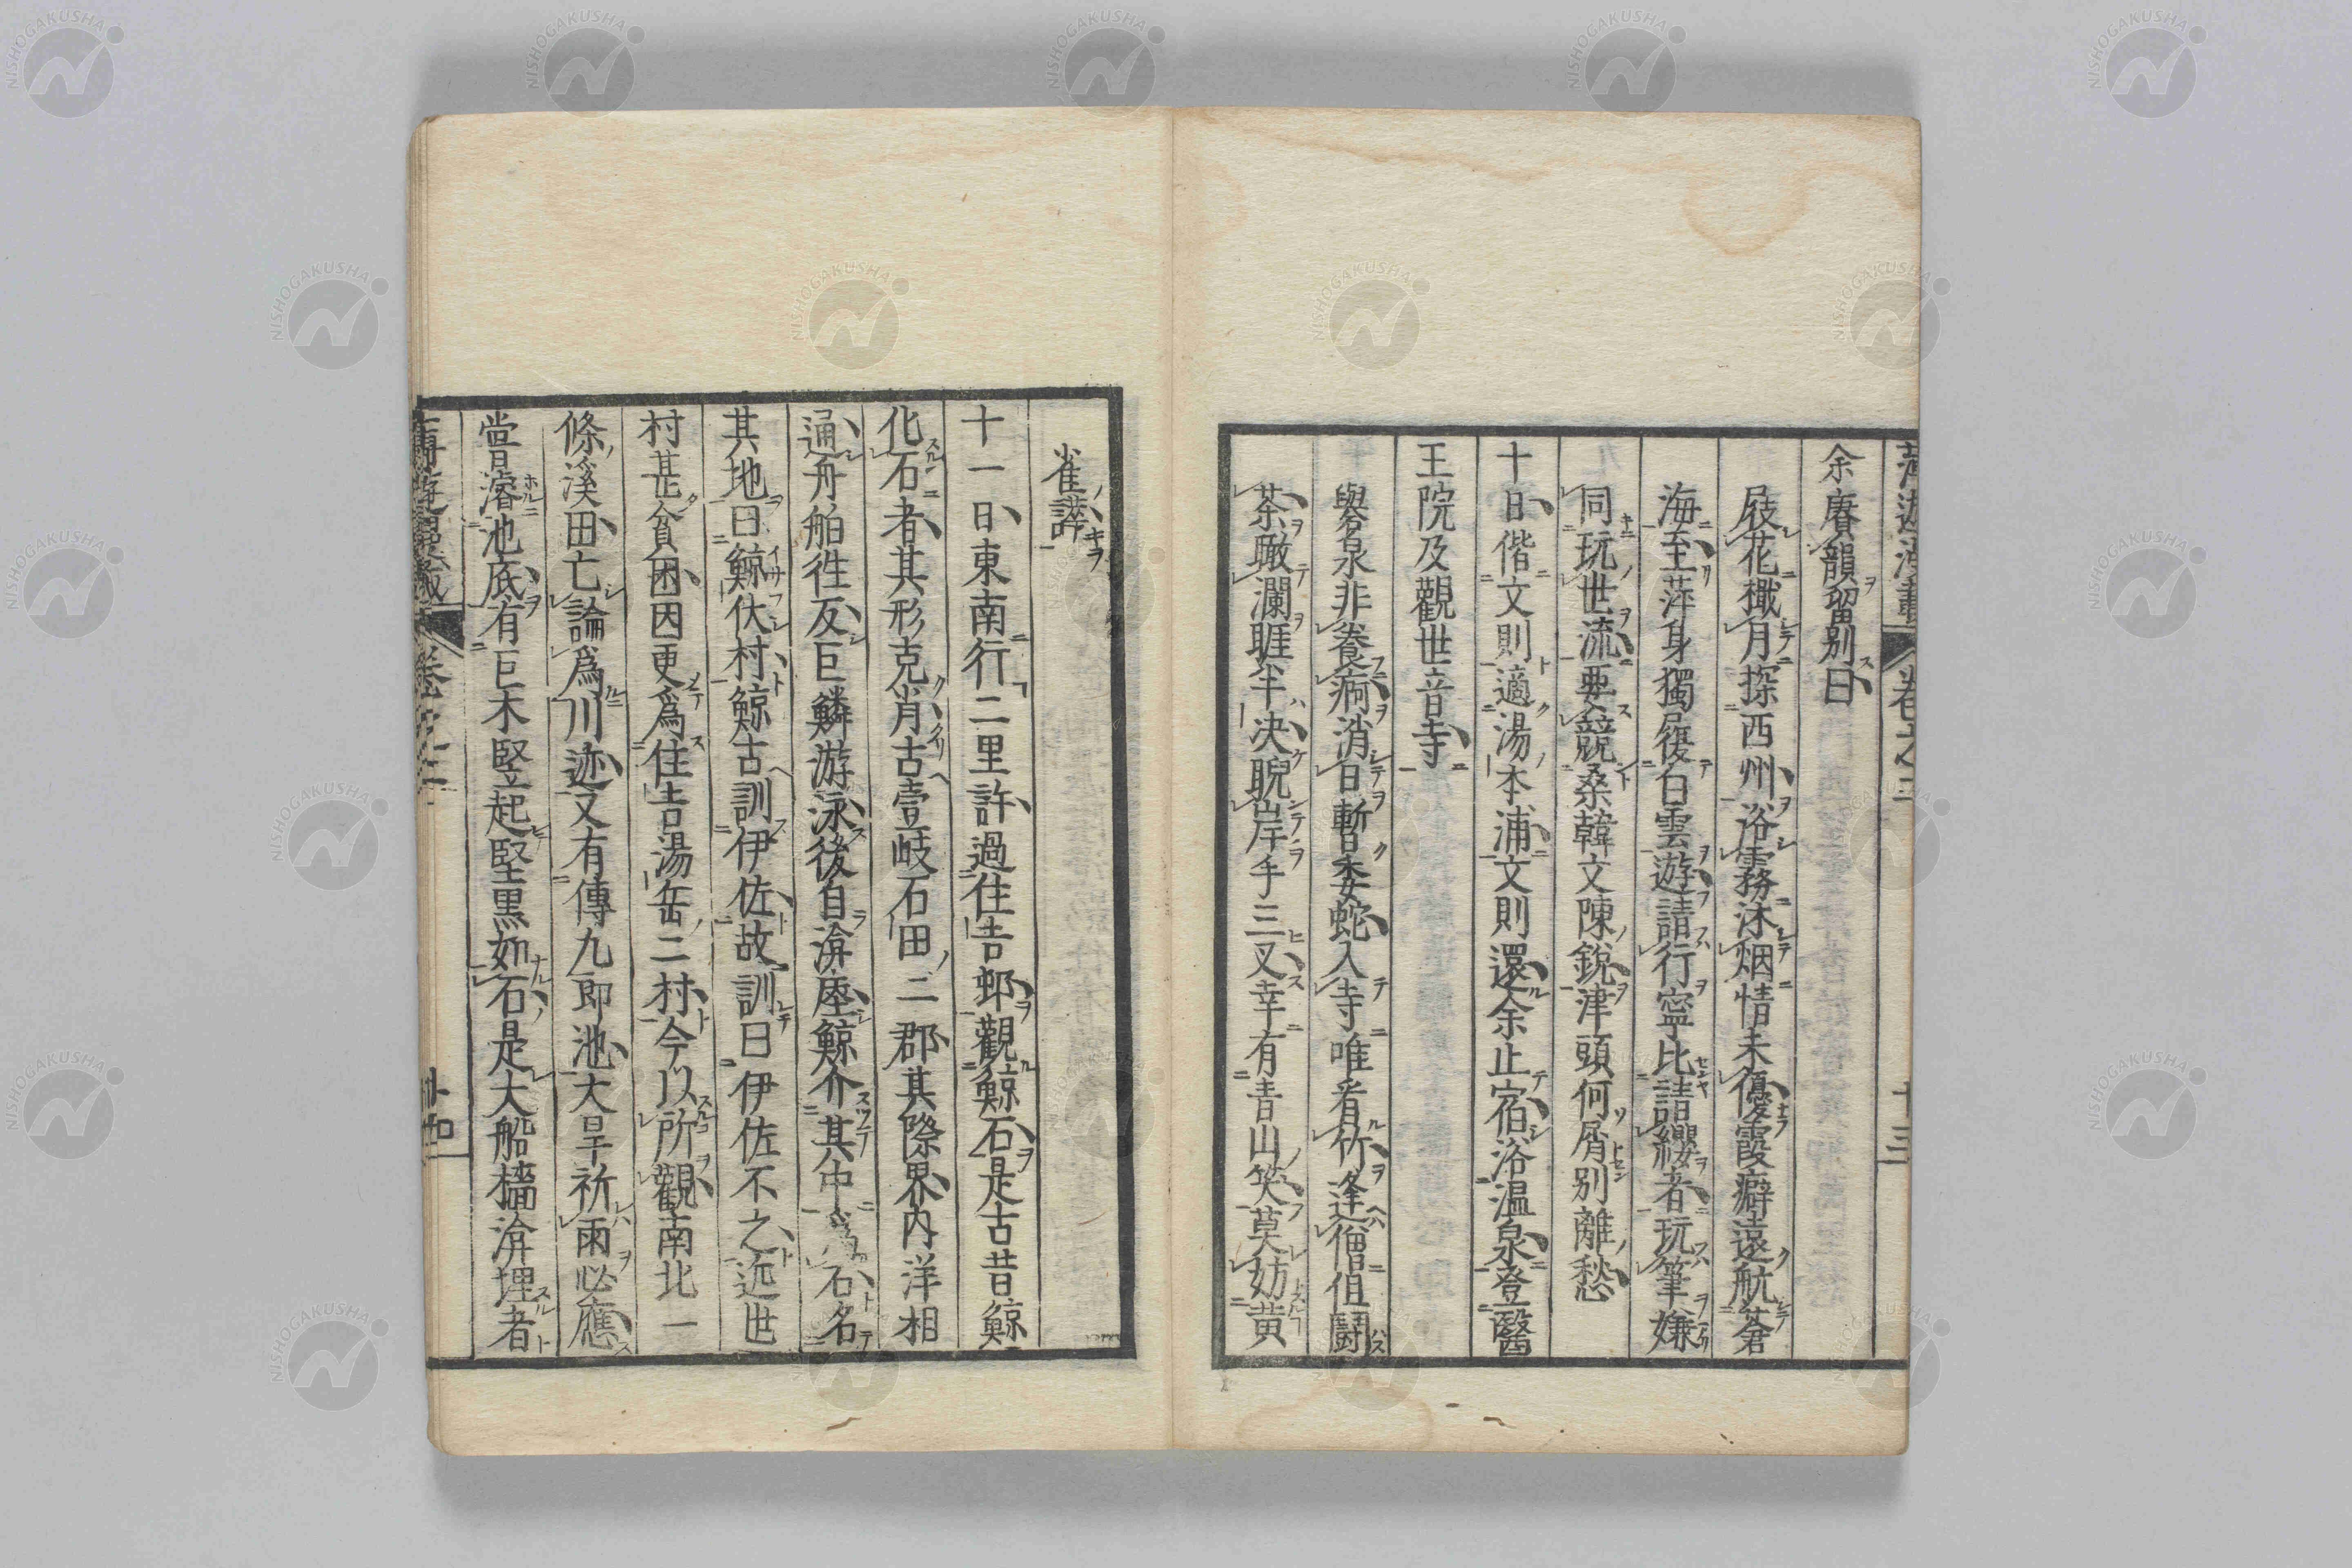 余賡韻留別曰
屐花檝月探西州浴霧沐烟情未優霞癖遠航蒼
海至萍身獨履白雲遊請行寧比請纓者玩筆嫌
同玩世流要競桑韓文陳銳津頭何屑別離愁
十日偕文則適湯本浦文則還余止宿浴温泉登醫
王院及觀世音寺
礜名泉非養痾消日暫委蛇入寺唯看竹逢僧但鬪
茶瞰瀾睚半決睨岸手三叉幸有青山笑莫妨黄
雀譁
十一日東南行二里許過住吉鄅觀鯨石是古昔鯨
化石者其形克肖古壹岐石田二郡其際界内洋相
通舟舶徃反巨鱗游泳後自渰堙鯨介其中爲石名
其地曰鯨伏村鯨古訓伊佐故訓曰伊佐不之近世
村甚貧困因更爲住吉湯岳二村今以所觀南北一
條溪田亡論爲川迹又有傳九郎池大旱祈雨必應
嘗濬池底有巨木竪起堅黒如石是大船檣渰埋者
卷之二
十三
NISHOGAKUSHA